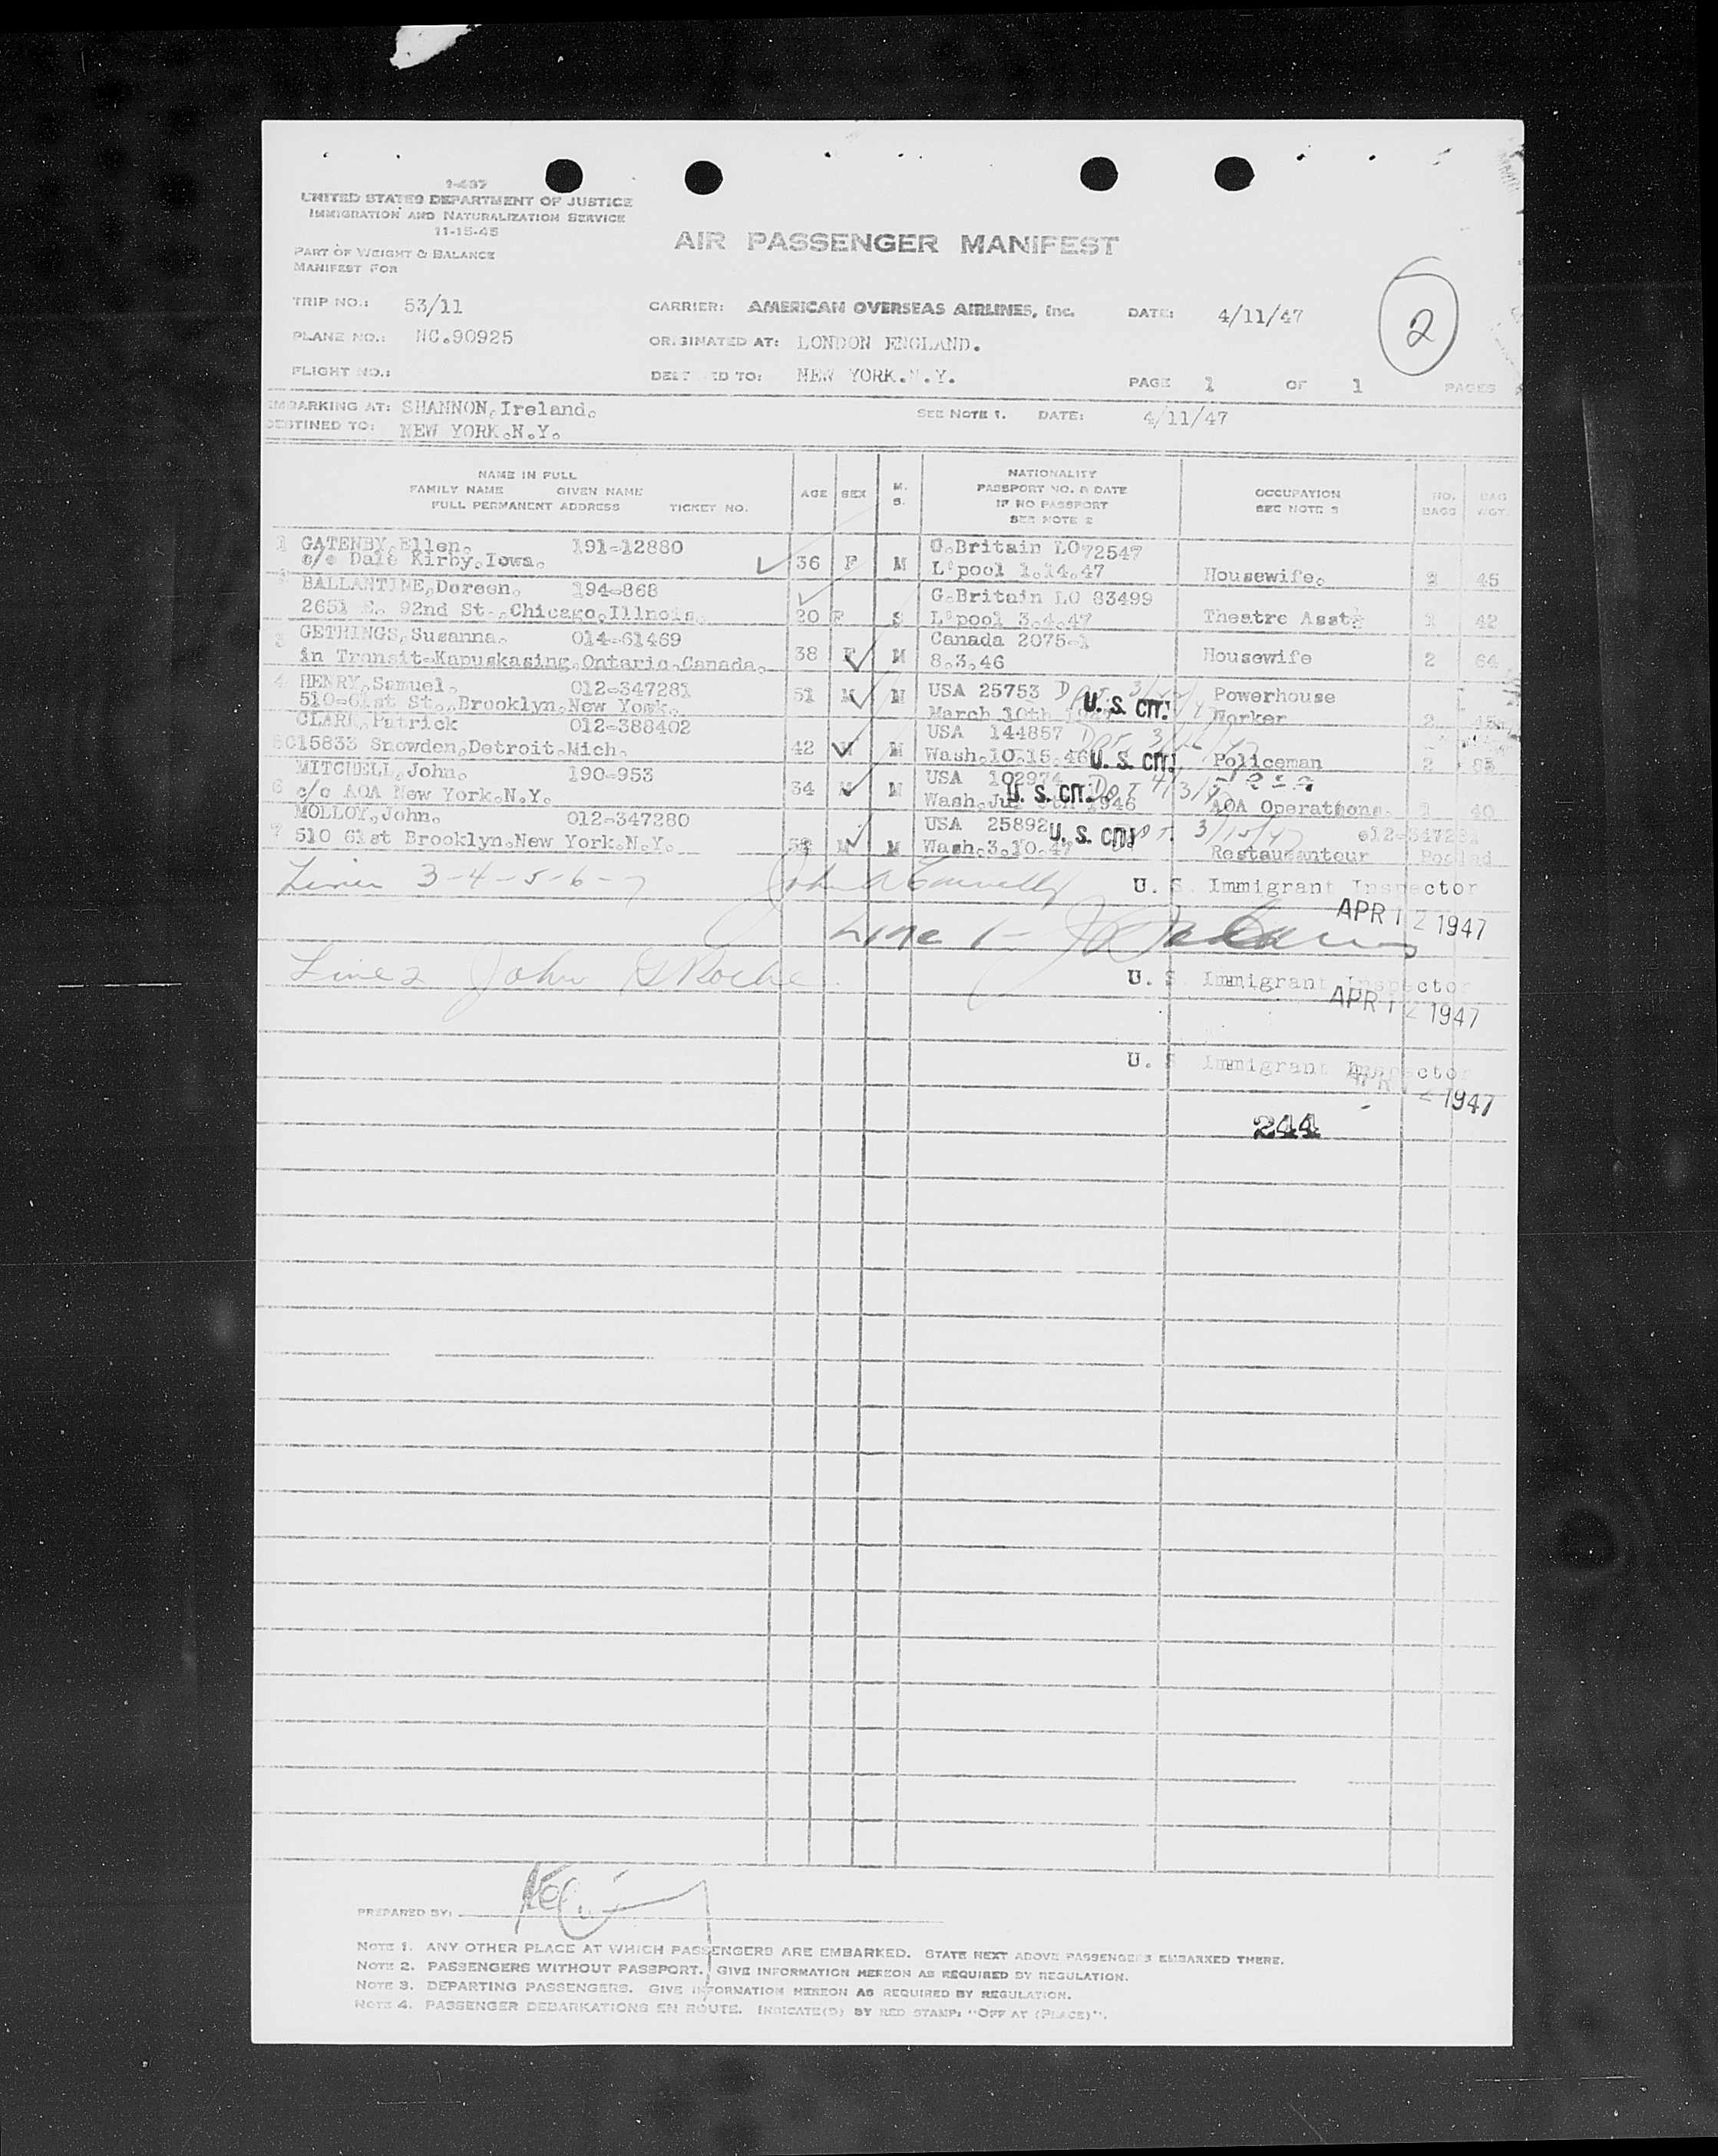 I-437
UNITED STATES DEPARTMENT OF JUSTICE
IMMIGRATION AND NATURALIZATION SERVICE
11-15-45
PART OF WEIGHT & BALANCE
MANIFEST FOR
AIR PASSENGER MANIFEST
2
TRIP NO.: 53/11 CARRIER: AMERICAN OVERSEAS AIRLINES, Inc. DATE: 4/11/47
PLANE NO.: NC.90925 ORIGINATED AT: LONDON ENGLAND.
FLIGHT NO.: TO: NEW YORK.N.Y. PAGE 1 OF 1 PAGES
EMBARKING AT: SHANNON, Ireland. SEE NOTE 1. DATE: 4/11/47
DESTINED TO: NEW YORK.N.Y.
NAME IN FULL
FAMILY NAME GIVEN NAME
FULL PERMANENT ADDRESS TICKET NO.
AGE SEX M. S.
NATIONALITY
PASSPORT NO. & DATE
IF NO PASSPORT
SEE NOTE 2
OCCUPATION
SEE NOTE 3
NO. BAGS
BAG WGT.
1 GATENBY,Ellen. 191-12880 G.Britain LO72547
c/o Dale Kirby,Iowa. 36 F M L'pool 1.14.47 Housewife. 2 45
BALLANTINE,Doreen. 194-868 G.Britain LO 83499
2651 E. 92nd St.,Chicago,Illnois. 20 F S L'pool 3.4.47 Theatre Asst. 1 42
3 GETHINGS,Susanna. 014-61469 Canada 2075-1
in Transit-Kapuskasing,Ontario,Canada. 38 F M 8.3.46 Housewife 2 64
4 HENRY,Samuel. 012-347281 51 M M USA 25753 Powerhouse
510-61st St.,Brooklyn,New York. March 10th U.S. CIT. Worker 2
CLARK,Patrick 012-388402 USA 144857
5 C15833 Snowden,Detroit,Mich. 42 M M Wash.10.15.46 U.S. CIT. Policeman 2
MITCHELL,John. 190-953 USA 102974
6 c/o AOA New York.N.Y. 34 M M Wash. 1946 U.S. CIT. AOA Operations. 1 40
MOLLOY,John. 012-347280 USA 25892 U.S. CIT. 3/15/47 012-347281
7 510 61st Brooklyn,New York.N.Y. M M Wash.3.10.47 Restauranteur Pooled
Lines 3-4-5-6-7 U. S. Immigrant Inspector
APR 12 1947
Line 1-
Line 2 John Roche U. S. Immigrant Inspector
APR 12 1947
U. S. Immigrant Inspector
APR 12 1947
244
PREPARED BY:
NOTE 1. ANY OTHER PLACE AT WHICH PASSENGERS ARE EMBARKED. STATE NEXT ABOVE PASSENGERS EMBARKED THERE.
NOTE 2. PASSENGERS WITHOUT PASSPORT. GIVE INFORMATION HEREON AS REQUIRED BY REGULATION.
NOTE 3. DEPARTING PASSENGERS. GIVE INFORMATION HEREON AS REQUIRED BY REGULATION.
NOTE 4. PASSENGER DEBARKATIONS EN ROUTE. INDICATE(D) BY RED STAMP: "OFF AT (PLACE)".